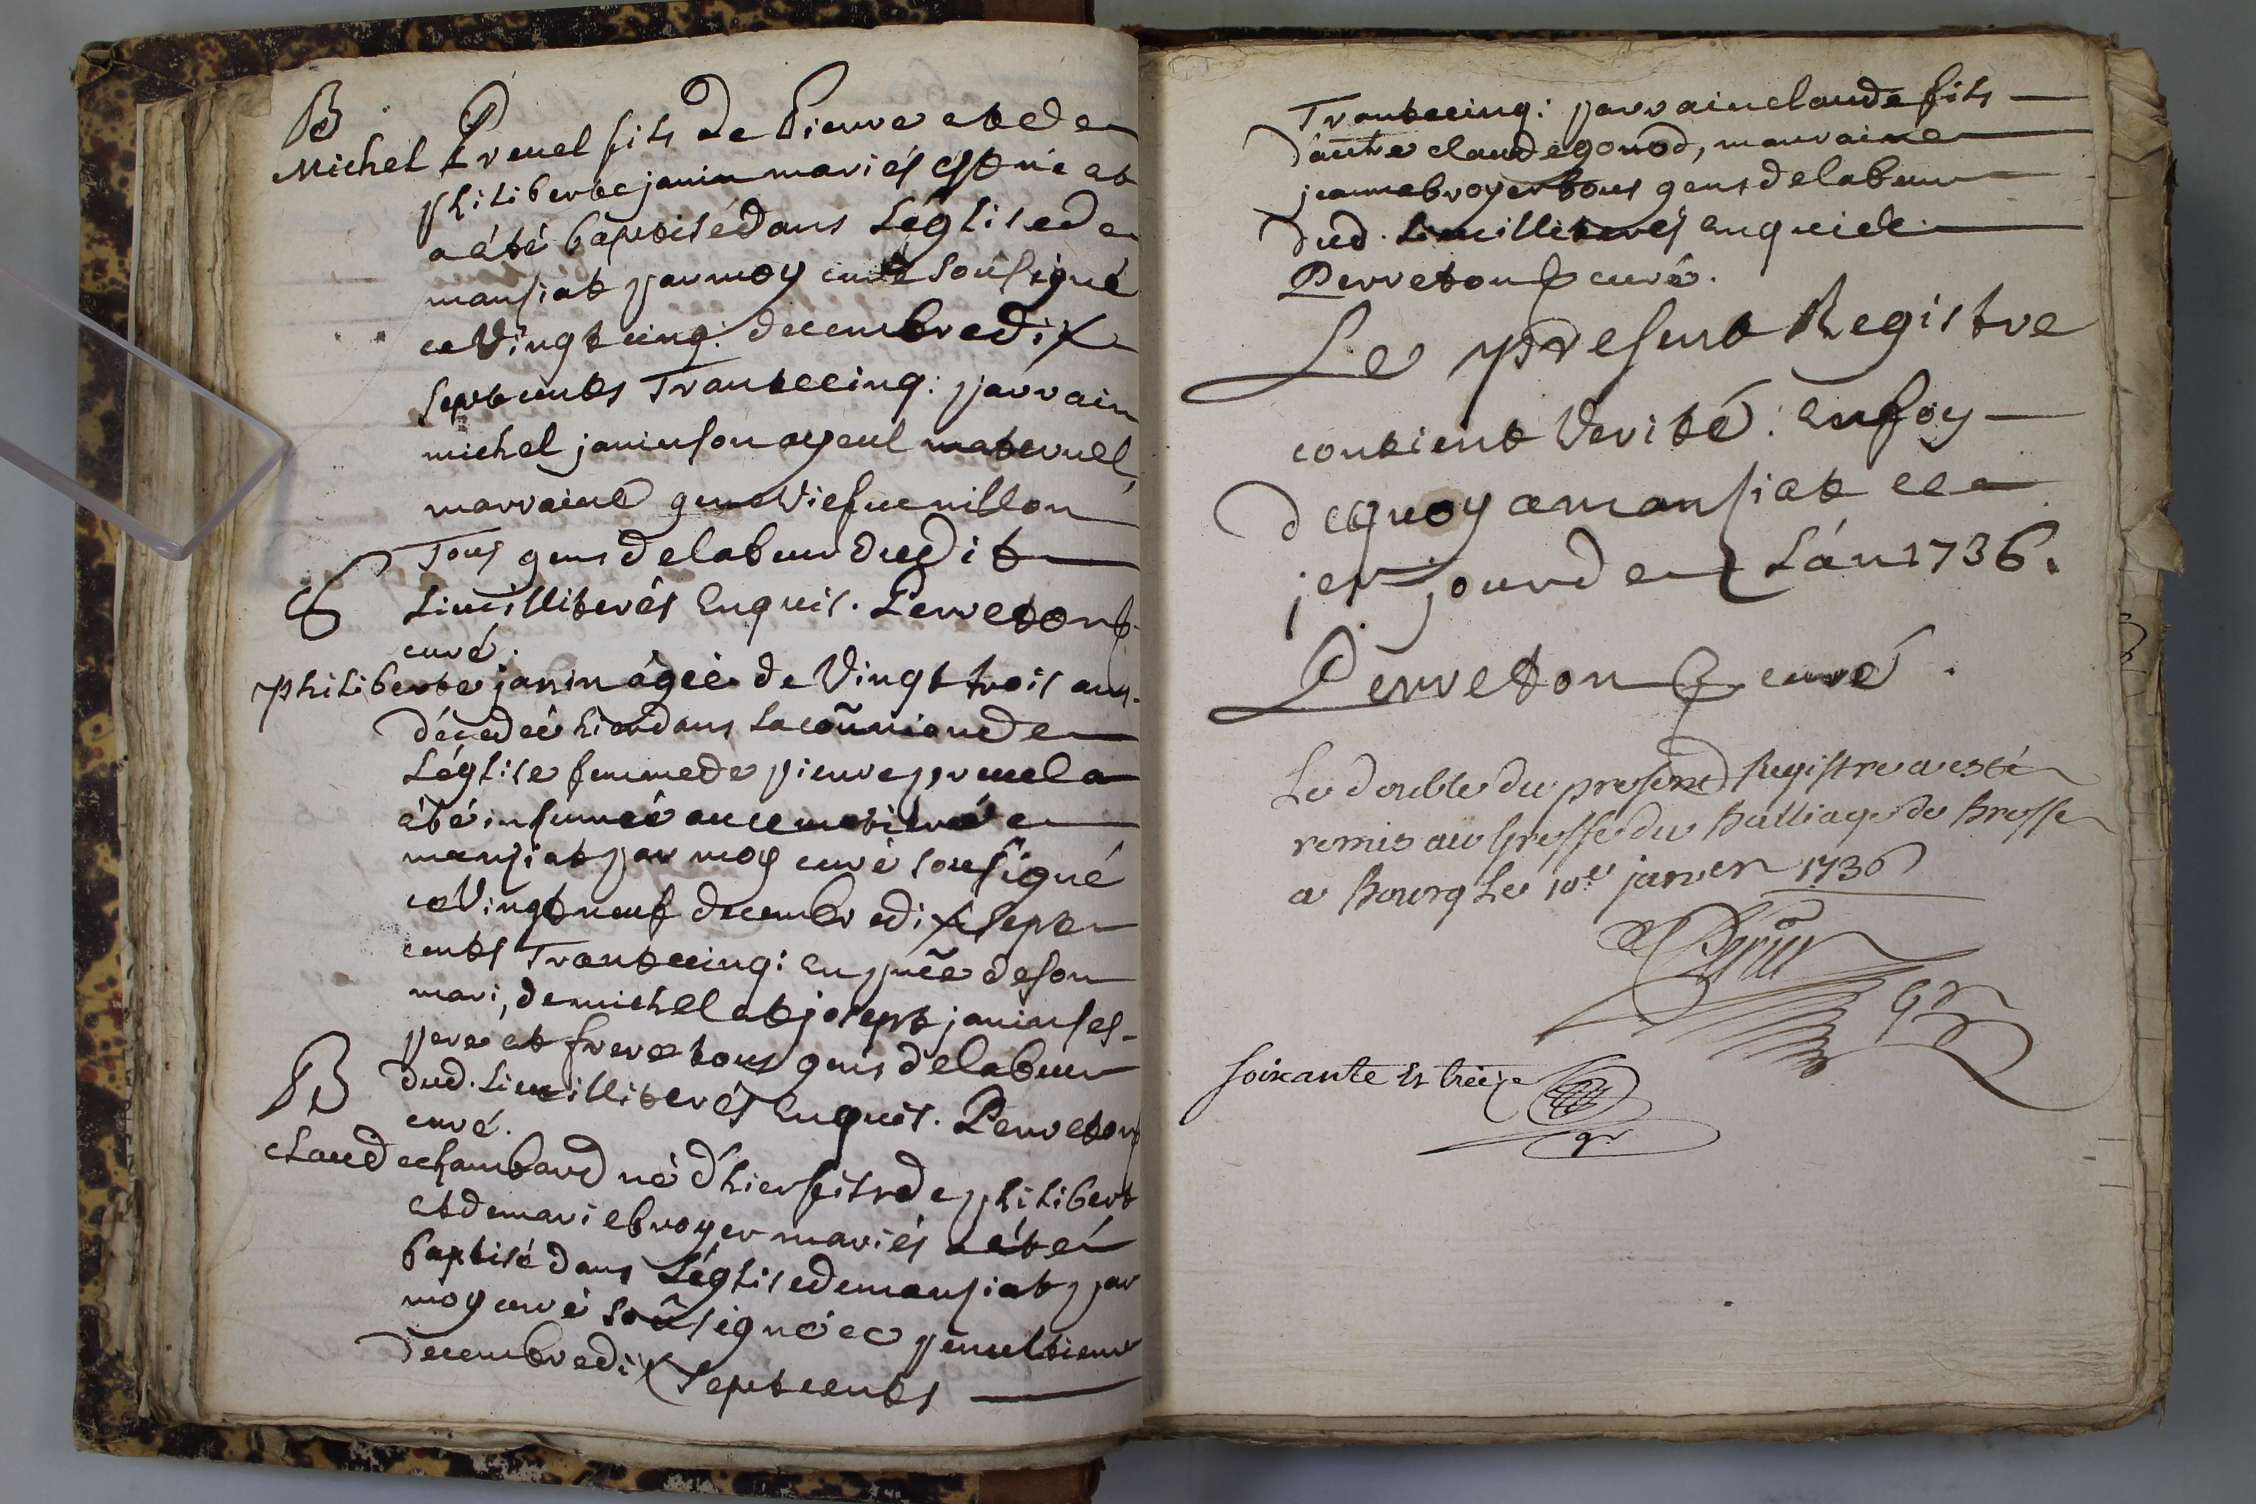 B
Michel Preuel fils de Pierre et de
philiberte janin mariés est né et
a été baptisé dans Léglise de
mansiat par moy curé sousigné
ce Vingt cinq: decembre dix
sept cents Trante cinq: parrain
michel janin son ayeul maternel,
marraine genevief uenillon
Tous gens de labeur dudit
S
Lieu illiterés Enquis. Perreton
curé.
philiberte janin âgée de Vingt trois ans
décedée hier dans la com̃union de
Léglise femme de pierre preuel a
été inhumée au cemetiere de
mansiat par moy curé sousigné
ce Vingt neuf decembre dix sept
cents Trante cinq: En pñce de son
mari, de michel et josept janin ses
pere et frere tous gens de labeur
dud. Lieu illiterés Enquis. Perreton
curé.
B
Claude chambard né d'hier fils de philibert
et de marie broyer mariés a été
baptisé dans Léglise de mansiat par
moy curé sousigné ce penultieme
decembre dix Sept cents
Trante cinq: parrain claude fils
d'autre claude gonod, marraine
jeanne broyer tous gens de labeur
dud. Lieu illiterés enquis de.
Perreton curé.
Le present Registre
contient Verité: En foy
de quoy a mansiat ce
jer jour de Lán 1736.
Perreton curé.
Le double du present Registre a esté
remis au Greffe du Balliage de Bresse
a Bourg Le 10e janver 1736
Gr
soixante Et treize